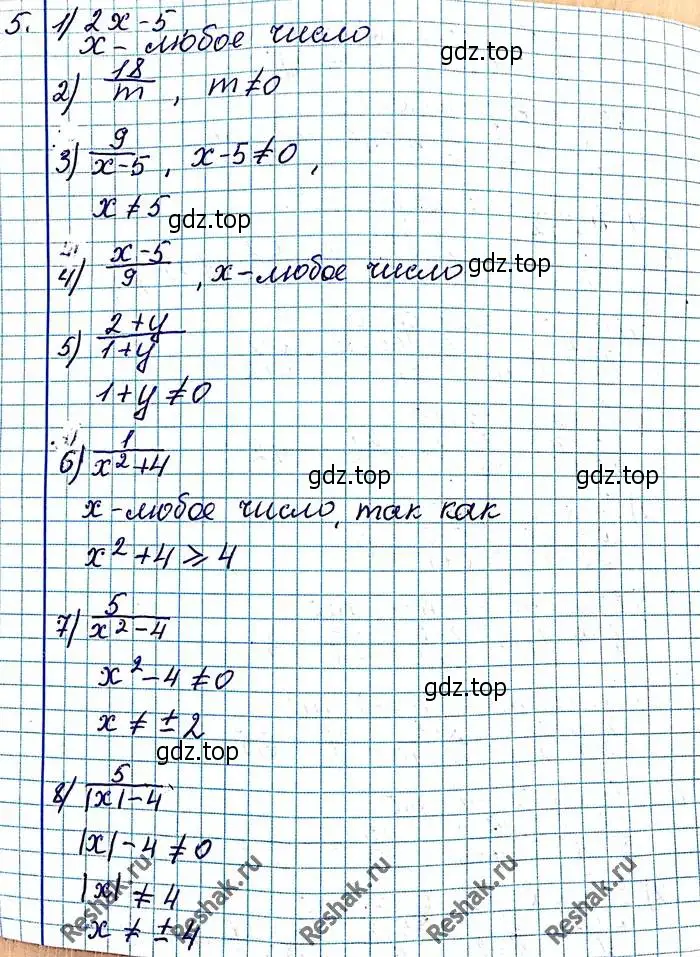 5. 1) 2x-5
x- любое число
gdz.top
2) 18/m, m≠0
3) 9/(x-5), x-5≠0,
x≠5
gdz.top
4) (x-5)/9, x-любое число
gdz.top
5) (2+y)/(1+y)
1+y≠0
6) 1/(x²+4)
gdz.top gdz.top
x-любое число, так как
x²+4⩾4
7) 5/(x²-4)
x²-4≠0
gdz.top
x≠±2
gdz.top
8) 5/(|x|-4)
|x|-4≠0
|x|≠4
x≠±4
Reshak.ru Reshak.ru Reshak.ru Reshak.ru Reshak.ru